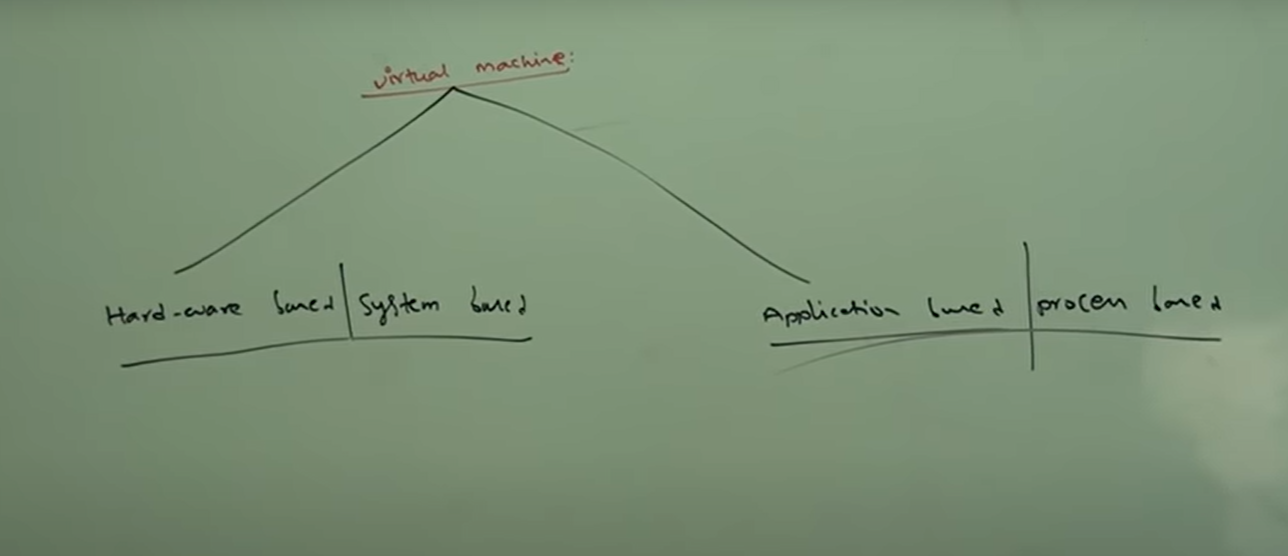 virtual machine:
Hard-ware based | System based
Application based | process based